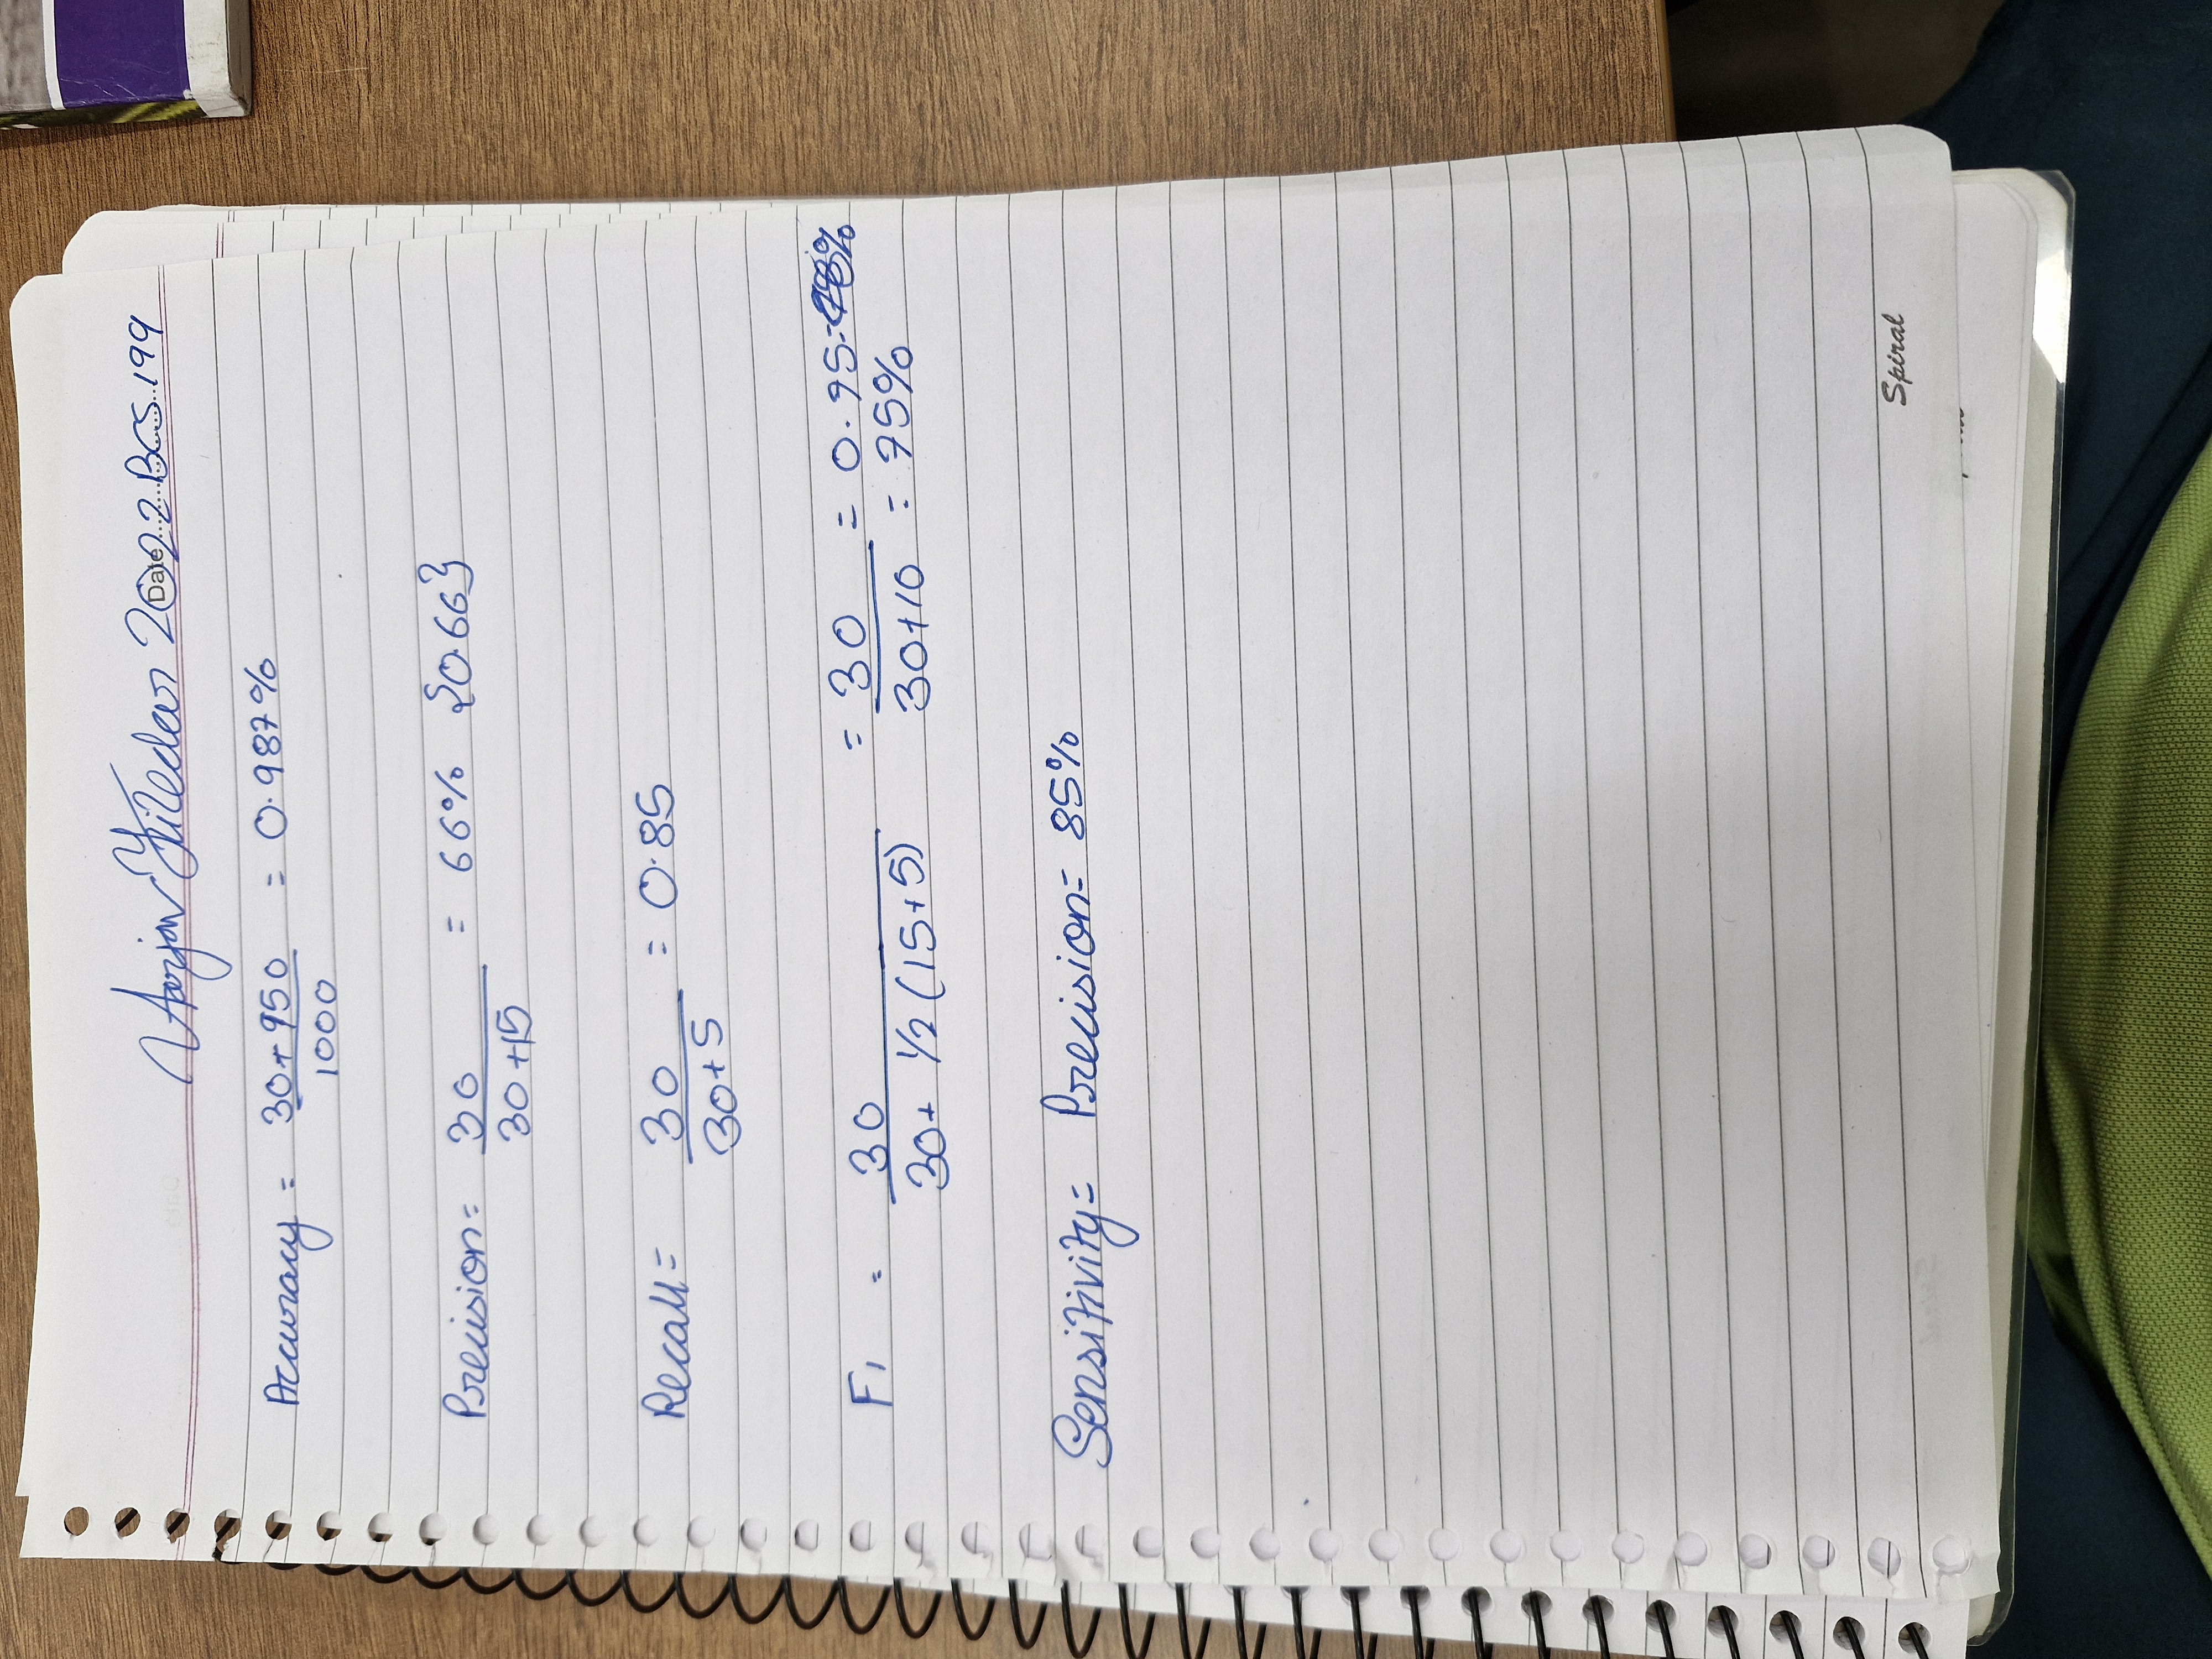 2022BCS199
Date
Accuracy = 30+950 / 1000 = 0.987%
Precision = 30 / 30+15 = 66% {0.66}
Recall = 30 / 30+5 = 0.85
F1 = 30 / 30+ 1/2 (15+5) = 30 / 30+10 = 0.75 = 75%
Sensitivity = Precision = 85%
Spiral